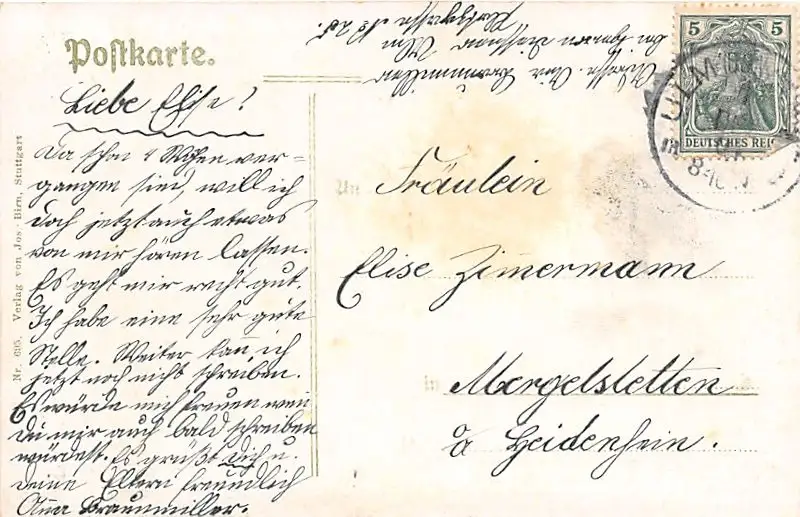 Postkarte.
Liebe Elise!
Da schon 4 Wochen ver-
gangen sind, will ich
doch jetzt auch etwas
von mir hören lassen.
Es geht mir recht gut.
Ich habe eine sehr gute
Stelle. Weiter kan̄ ich
jetzt noch nicht schreiben.
Es würde mich freuen wen̄
du mir auch bald schreiben
würdest. Es grüßt Dich u.
deine Eltern freundlich
Anna Braunmiller.
Adresse. Anna Braunmiller
bei Herrn Ulm
No 20.
5 5
DEUTSCHES REICH
ULM
8-9
Fräulein
Elise Zimermann
in Mergelstetten
a Heidenheim.
Nr. 695. Verlag von Jos. Birn, Stuttgart